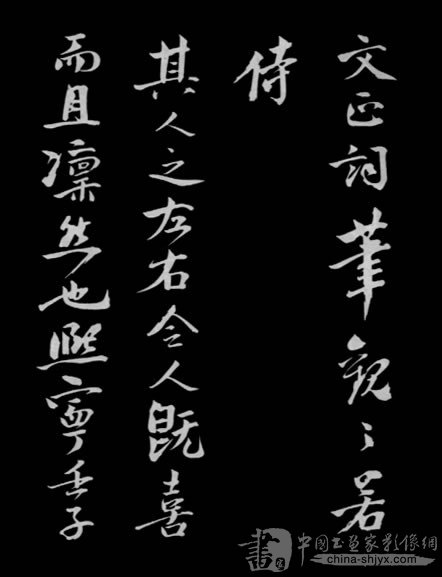 文正詞筆觀之若
侍
其人之左右令人既喜
而且凛然也熙寧壬子
書 中国书画家影像網
china-shjyx.com